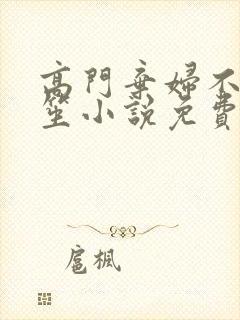 高門棄婦不
笙小說免費
扈楓